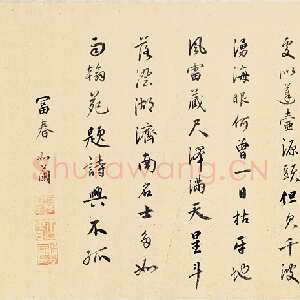 更似蓬壺源頭但千波
湧海眼何曾一日枯平地
風雷藏尺澤滿天星斗
落澄湖濟南名士多如
雨翰苑題詩興不孤
富春
Shufawang.CN